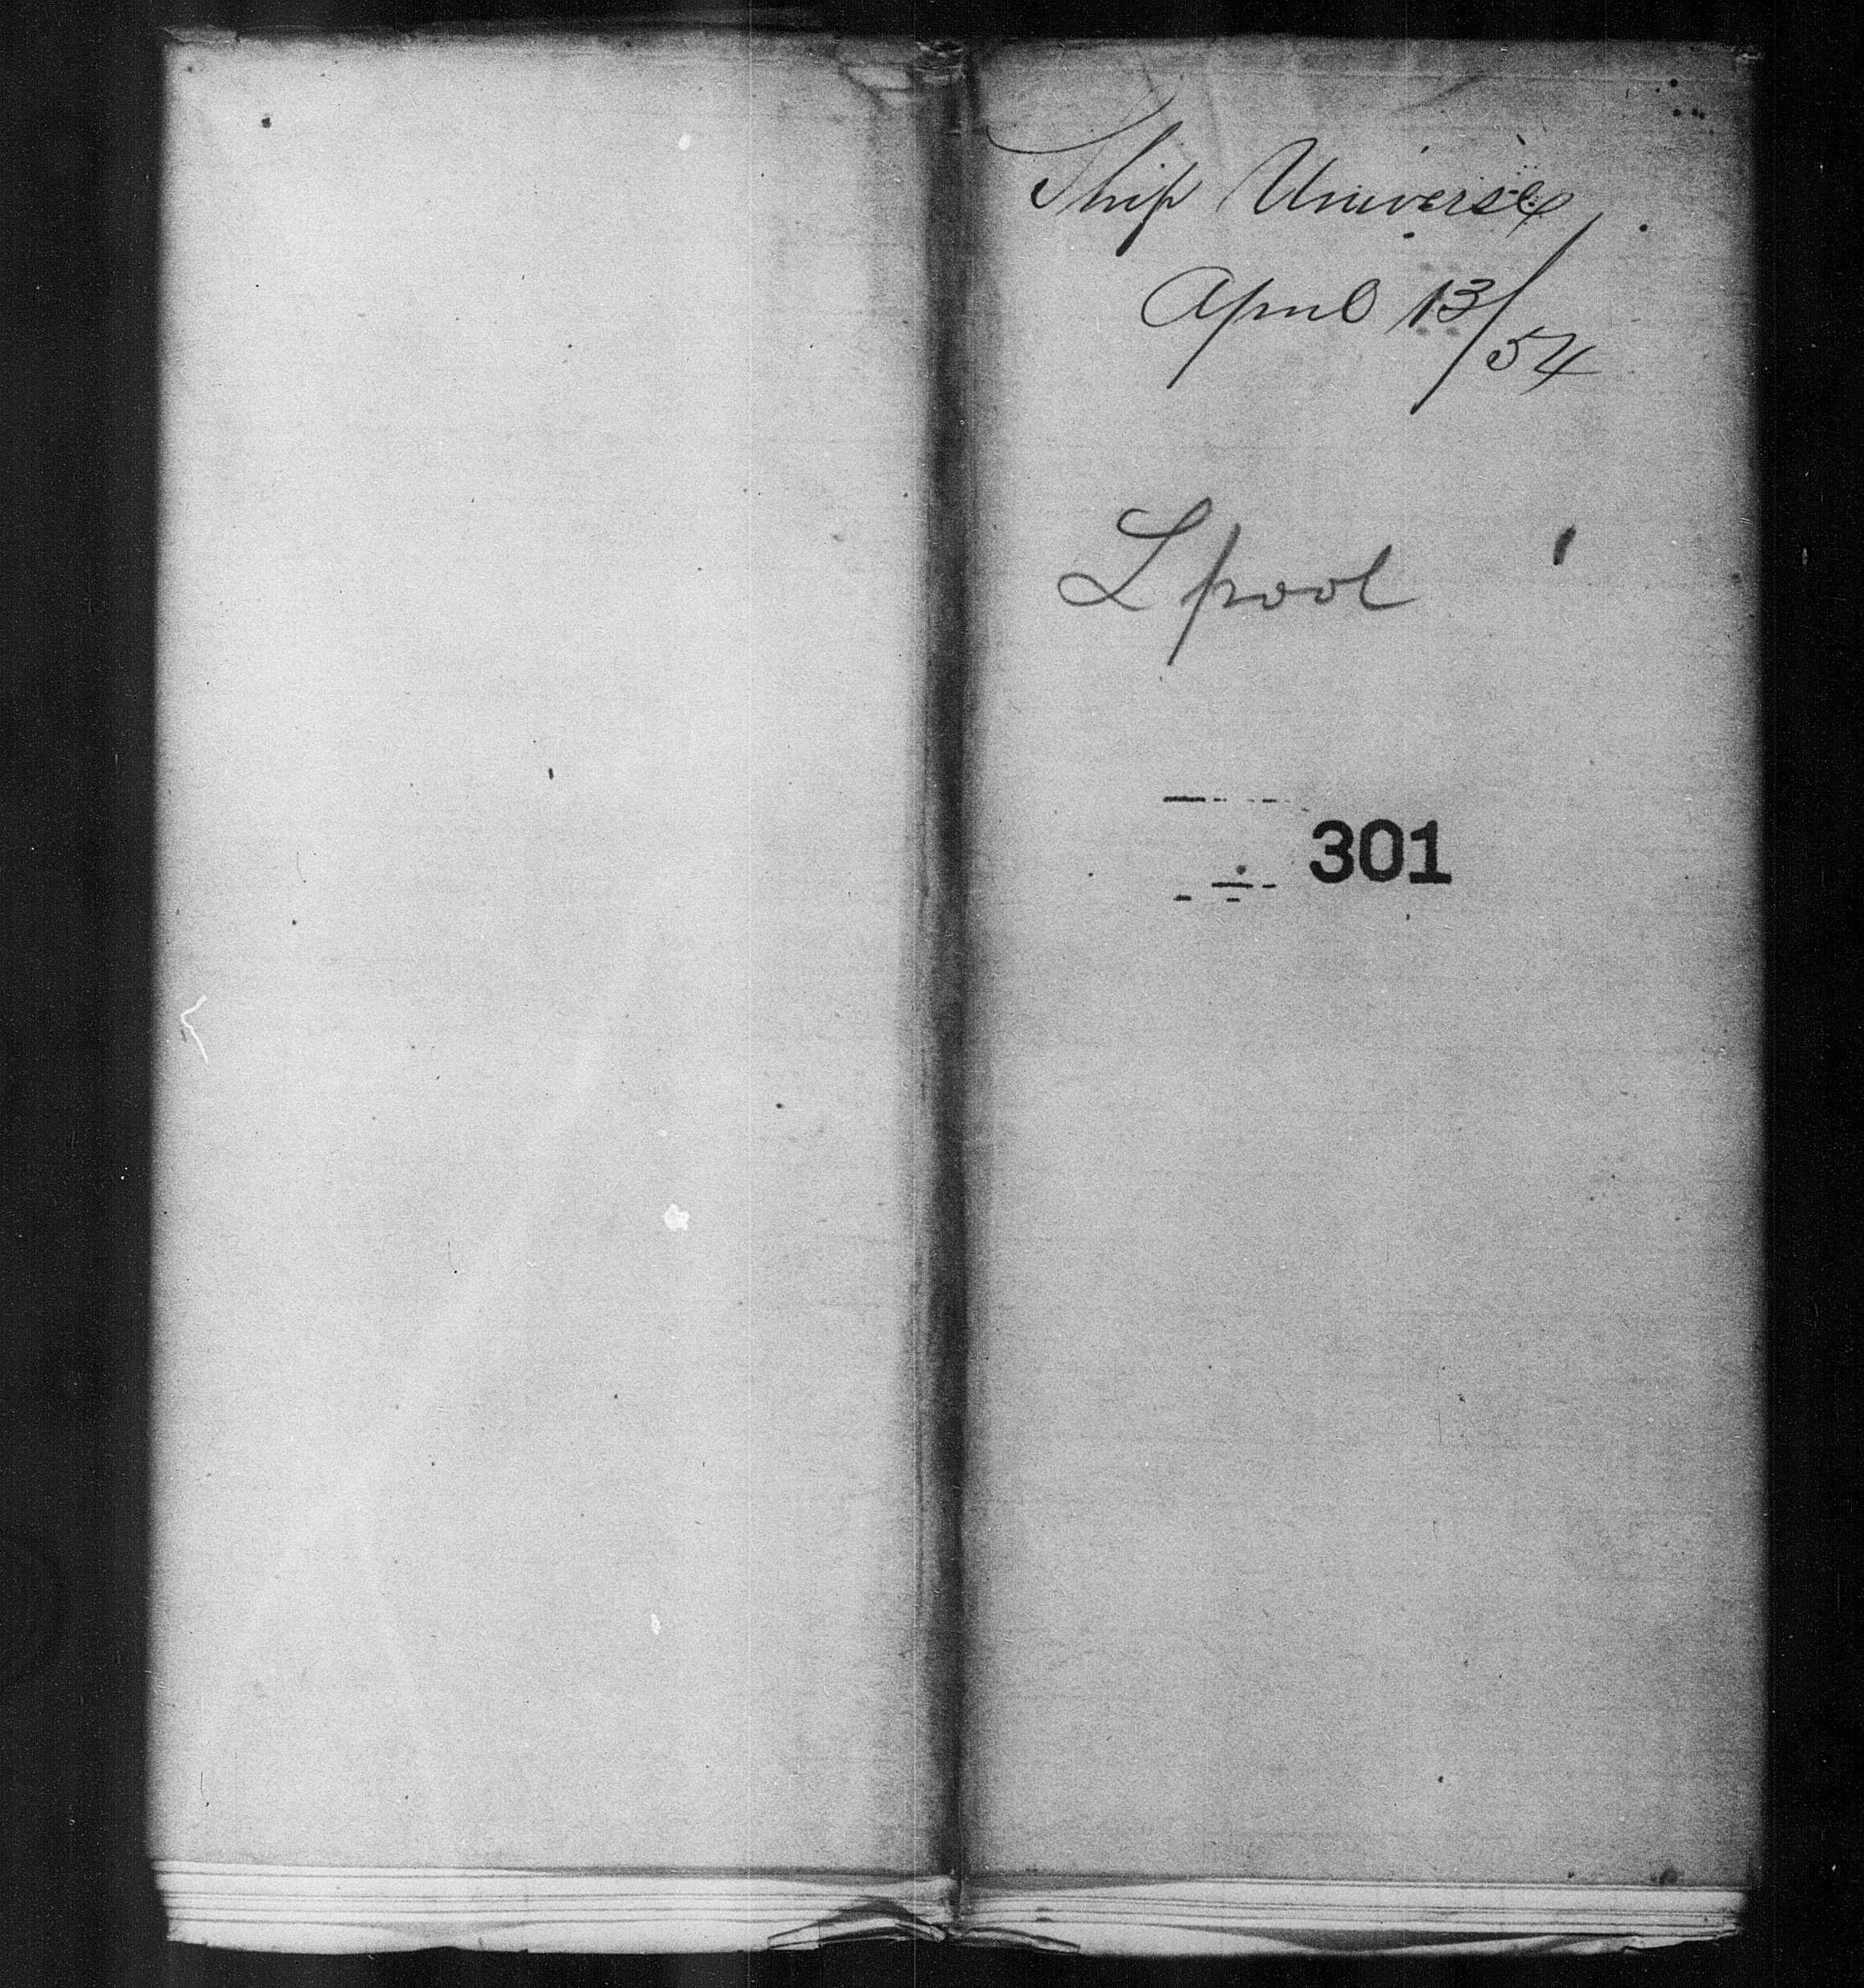 Ship Universe
April 13/54
Lpool
301